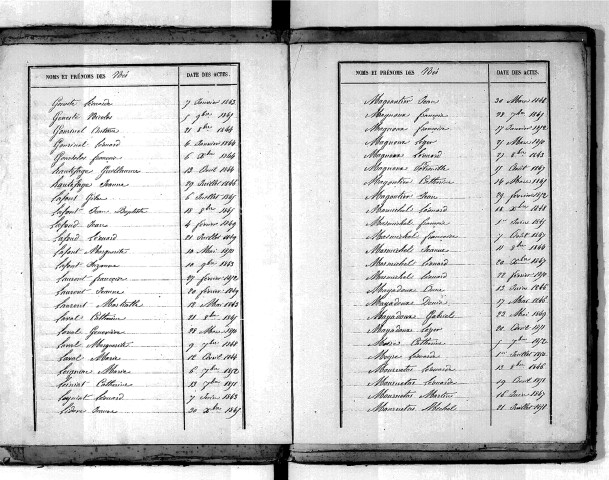 NOMS ET PRÉNOMS DES Nés DATE DES ACTES.
Geneste Léonarde 7 Janvier 1863
Geneste Nicolas 1 9bre 1867
Gouvinel Antoine 21 9bre 1864
Gouvinel Léonard 6 Janvier 1864
Goudelos François 6 Xbre 1864
hautefage Guillaume 13 Avril 1864
hautefage Jeanne 29 Juillet 1866
Lafont 6 Juillet 1867
Lafont Jean Baptiste 18 9bre 1867
Lafond Jean 4 février 1869
Lafond Léonard 21 Juillet 1869
Lafont Marguerite 10 Mai 1870
Lafont Suzanne 10 9bre 1863
Laurent françoise 27 février 1872
Laurent Jeanne 20 février 1869
Laurent 12 Mai 1863
Laval Catherine 21 8bre 1867
Laval Geneviève 28 Mars 1870
Laval Marguerite 9 7bre 1868
Laval Marie 12 Avril 1864
Leignac Marie 6 7bre 1872
Catherine 13 7bre 1871
Léonard 7 Juin 1863
Jeanne 20 Xbre 1867
NOMS ET PRÉNOMS DES Nés DATE DES ACTES.
Magnantier Jean 30 Mars 1868
Magnoux françois 28 7bre 1867
Magnoux françoise 17 Janvier 1872
Magnoux Léger 25 Mars 1870
Magnoux Léonard 27 8bre 1863
Magnoux Pétronille 17 Août 1867
Magnantier Catherine 14 Mars 1867
Magnantier Jean 29 février 1872
Masmichel Léonard 14 Xbre 1868
Masmichel françois 1er Juin 1867
Masmichel françoise 7 Août 1867
Masmichel Jeanne 11 8bre 1864
Masmichel Léonard 20 Xbre 1867
Masmichel Léonard 22 février 1870
Mayadoux Anne 13 Juin 1866
Mayadoux Denis 17 Mai 1866
Mayadoux Gabriel 23 Mai 1869
Mayadoux Léger 20 Avril 1871
Catherine 1 7bre 1872
Léonarde 1er Juillet 1870
Mournetas Léonarde 13 8bre 1866
Mournetas Léonarde 19 Avril 1871
Mournetas Martin 16 Juin 1867
Mournetas Michel 21 Juillet 1871